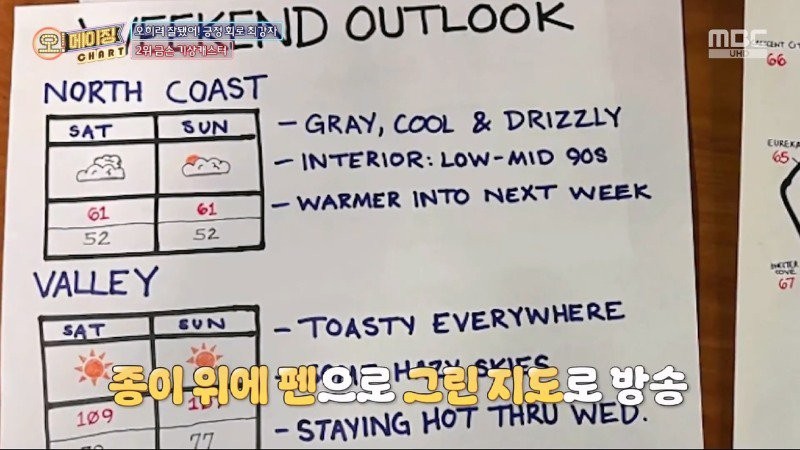 오!메이징
CHART
오히려 잘됐어! 긍정 회로 최강자
2위 금손 기상캐스터
MBC
UHD
WEEKEND OUTLOOK
NORTH COAST
SAT SUN
61 61
52 52
- GRAY, COOL & DRIZZLY
- INTERIOR: LOW-MID 90S
- WARMER INTO NEXT WEEK
VALLEY
SAT SUN
109
77
- TOASTY EVERYWHERE
HAZY SKIES
- STAYING HOT THRU WED.
66
EUREKA
65
COVE
67
종이 위에 펜으로 그린 지도로 방송